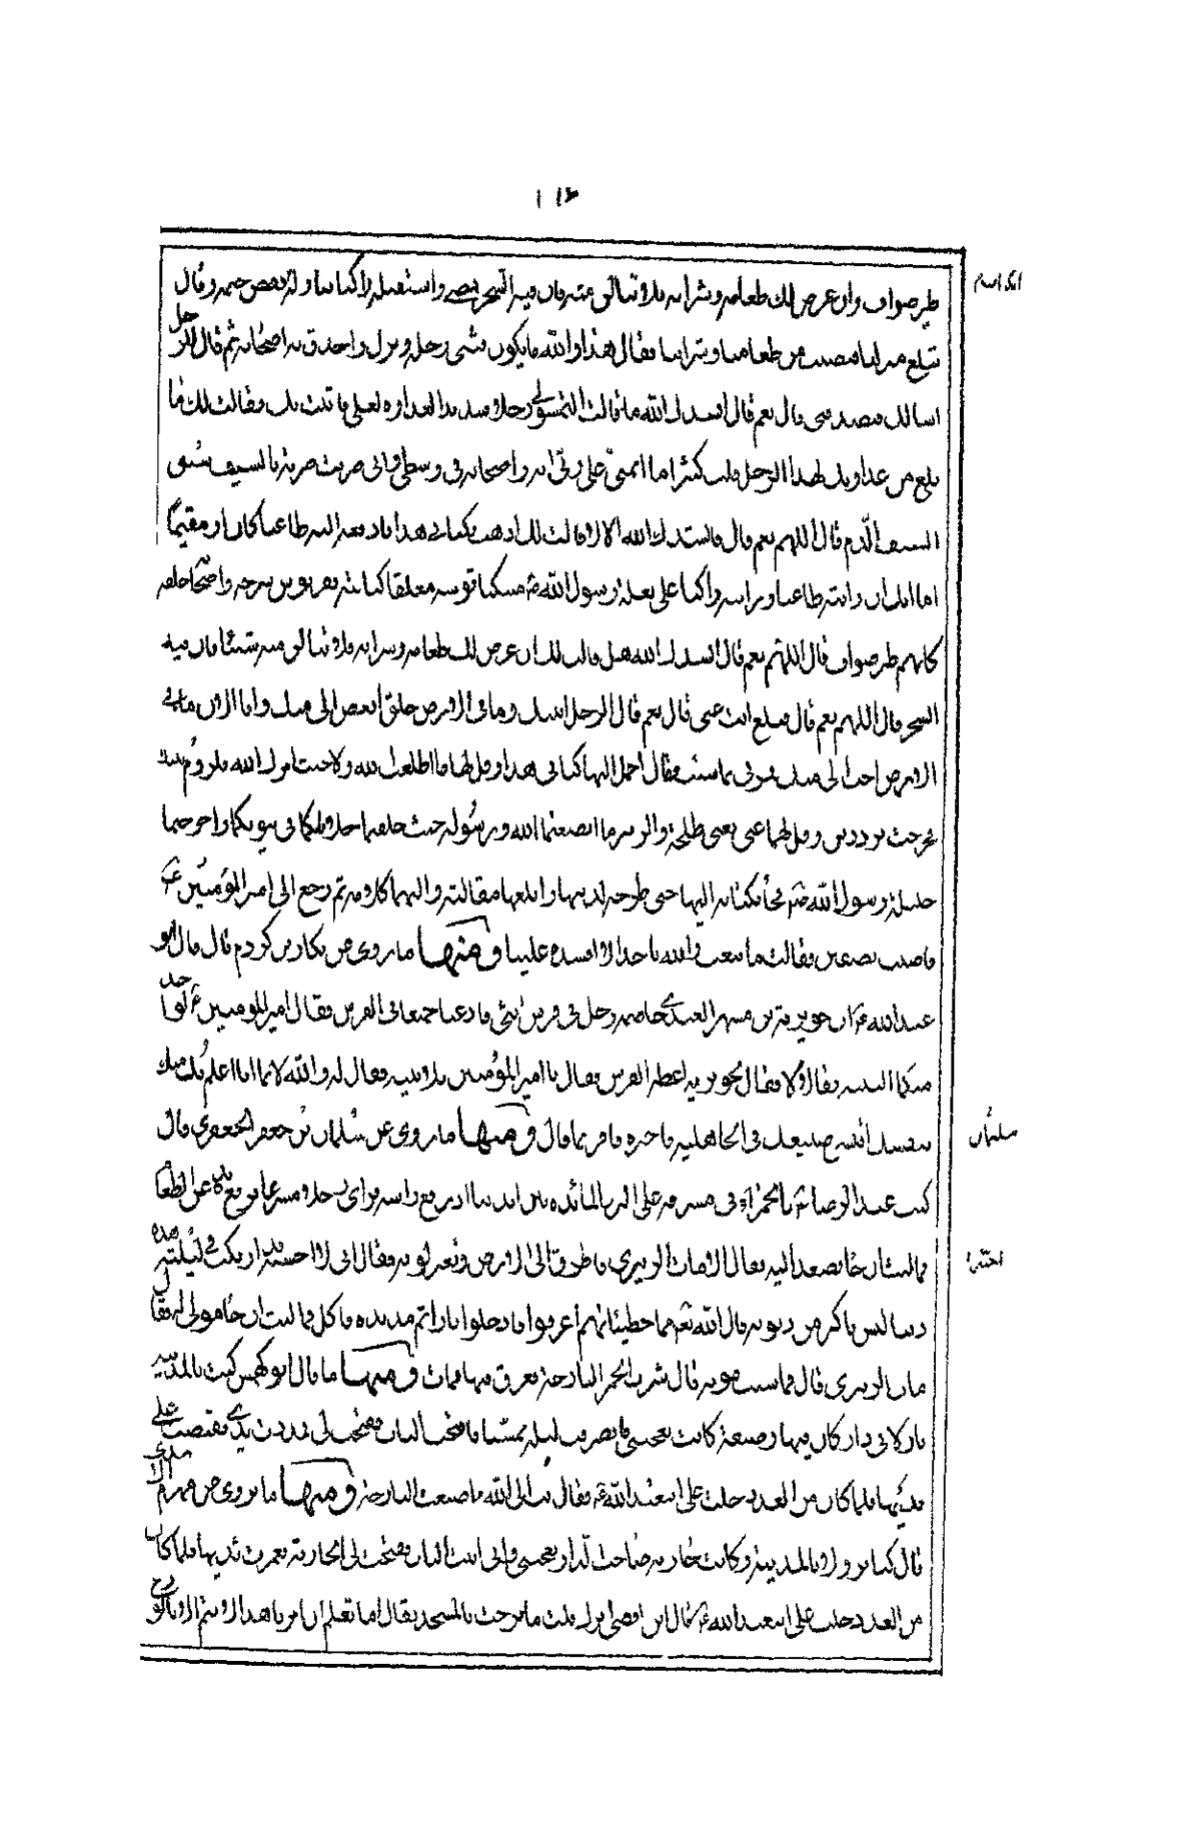 طير صواف وان عرض لك طعامه وشرابه فلا تنالن منه فان فيه السحر فمضى واستقبله راكبا فناوله ففض ختمه وقال
تبلغ منزلنا فتصيب من طعامنا وشرابنا فقال هذا والله ما لا يكون فثنى رجله ونزل واحدق به اصحابه ثم قال للرجل
اسالك فتصدقني قال نعم قال انشدك الله ما قالت التمسوا لي رجلا شديد العداوة لهذا فاتيت بك وقالت لك ما
بلغ من عداوتك لهذا الرجل قلت كثيرا ما اتمنى على ربي انه واصحابه في وسطي واني ضربت ضربة بالسيف يسبق
السيف الدم قال اللهم نعم قال فانشدك الله الا قالت لك اذهب بكتابي هذا فادفعه اليه ظاعنا كان او مقيما
اما انك ان رايته ظاعنا رايته راكبا على بغلة رسول الله متنكبا قوسه معلقا كنانته بقربوس سرجه واصحابه خلفه
كانهم طير صواف قال اللهم نعم قال انشدك الله هل قالت لك ان عرض لك طعامه وشرابه فلا تنالن منه شيئا فان فيه
السحر قال اللهم نعم قال فمبلغ انت عني قال نعم قال الرجل اتيتك وما في الارض خلق ابغض الي منك وانا الان ما في
الارض احب الي منك فمرني بما شئت فقال احمل اليها كتابي هذا وقل لها ما اطعت الله ولا حيث امرك الله بلزوم بيتك
فخرجت ترددين وقل لهما عني يعني طلحة والزبير ما انصفتما الله ورسوله حيث خلفتما حلائلكما في بيوتكما واخرجتما
حليلة رسول الله فجاء بكتابه اليها حتى طرحه لديها وابلغها مقالته واليهما كلامه ثم رجع الى امير المؤمنين
فاصيب بصفين فقالت ما نبعث والله باحد الا افسده علينا ومنها ما روي عن بكار بن كردم قال قال ابو
عبد الله ان جويرية بن مسهر العبدي خاصمه رجل في فرس انثى فادعيا جميعا في الفرس فقال امير المؤمنين الواحد
منكما البينة فقالا لا فقال لجويرية اعطه الفرس فقال يا امير المؤمنين بلا بينة فقال له والله لانا اعلم بك منك
بنفسك اتنسى صنيعك في الجاهلية فاخبره فاقر بما قال ومنها ما روي عن سليمان بن جعفر الجعفري قال
كنت عند الرضا بالحمراء في مشرفة على البر والمائدة بين ايدينا اذ رفع راسه فراى رجلا مسرعا فرفع يده عن الطعام
فما لبث ان جاء فصعد اليه فقال مات الزبيري فاطرق الى الارض وتغير لونه فقال اني لا احسبه ارتكب في ليلته هذه
ذنبا ليس باكبر من ذنوبه قال الله مما خطيئاتهم اغرقوا فادخلوا نارا ثم مد يده فاكل فما لبث ان جاء مولى له فقال
مات الزبيري قال فما سبب موته قال شرب الخمر البارحة فغرق فيها فمات ومنها ما قال ابو كهمس كنت بالمدينة
نازلا في دار كان فيها وصيفة كانت تعجبني فانصرفت ليلة ممسيا فاستفتحت الباب ففتحت لي فمددت يدي فقبضت على
ثديها فلما كان من الغد دخلت على ابي عبد الله فقال تب الى الله مما صنعت البارحة ومنها ما روي عن مهزم
قال كنا نزولا بالمدينة وكانت جارية صاحب الدار تعجبني واني اتيت الباب ففتحت لي الجارية فغمزت ثديها فلما كان
من الغد دخلت على ابي عبد الله قال اين اقصى اثرك قلت ما برحت بالمسجد فقال اما تعلم ان امرنا هذا لا يتم الا بالورع
سليمان